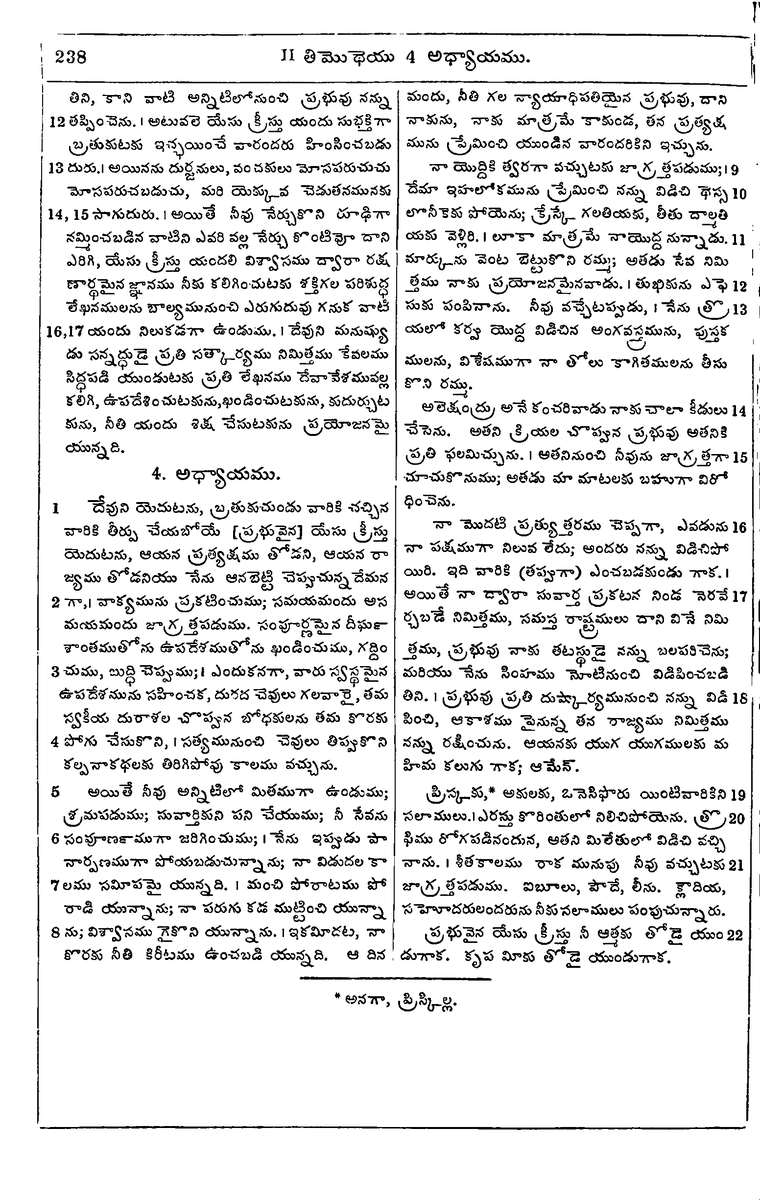 238
II తిమొథెయు 4 అధ్యాయము.
తిని, కాని వాటి అన్నిటిలోనుంచి ప్రభువు నన్ను
12 తప్పించెను. । అటువలె యేసు క్రీస్తు యందు సుభక్తిగా
బ్రతుకుటకు ఇచ్ఛయించే వారందరు హింసించబడు
13 దురు. । అయినను దుర్జనులు, వంచకులు మోసపరుచుచు
మోసపరుచబడుచు, మరి యెక్కువ చెడుతనమునకు
14, 15 సాగుదురు. । అయితే నీవు నేర్చుకొని రూఢిగా
నమ్మించబడిన వాటిని ఎవరి వల్ల నేర్చు కొంటివో దాని
ఎరిగి, యేసు క్రీస్తు యందలి విశ్వాసము ద్వారా రక్ష
ణార్థమైన జ్ఞానము నీకు కలిగించుటకు శక్తిగల పరిశుద్ధ
లేఖనములను బాల్యమునుంచి ఎరుగుదువు గనుక వాటి
16,17 యందు నిలుకడగా ఉండుము. । దేవుని మనుష్యు
డు సన్నద్ధుడై ప్రతి సత్కార్యము నిమిత్తము కేవలము
సిద్ధపడి యుండుటకు ప్రతి లేఖనము దేవావేశమువల్ల
కలిగి, ఉపదేశించుటకును,ఖండించుటకును, కుదుర్చుట
కును, నీతి యందు శిక్ష చేసుటకును ప్రయోజనమై
యున్నది.
4. అధ్యాయము.
1 దేవుని యెదుటను, బ్రతుకుచుండు వారికి చచ్చిన
వారికి తీర్పు చేయబోయే [ప్రభువైన] యేసు క్రీస్తు
యెదుటను, ఆయన ప్రత్యక్షము తోడని, ఆయన రా
జ్యము తోడనియు నేను ఆనబెట్టి చెప్పుచున్న దేమన
2 గా,। వాక్యమును ప్రకటించుము; సమయమందు అస
మయమందు జాగ్రత్తపడుము. సంపూర్ణమైన దీర్ఘ
శాంతముతోను ఉపదేశముతోను ఖండించుము, గద్దిం
3 చుము, బుద్ధి చెప్పుము; । ఎందుకనగా, వారు స్వస్థమైన
ఉపదేశమును సహించక, దురద చెవులు గలవారై, తమ
స్వకీయ దురాశల చొప్పున బోధకులను తమ కొరకు
4 పోగు చేసుకొని, । సత్యమునుంచి చెవులు తిప్పుకొని
కల్పనాకథలకు తిరిగిపోవు కాలము వచ్చును.
5 అయితే నీవు అన్నిటిలో మితముగా ఉండుము;
శ్రమపడుము; సువార్తికుని పని చేయుము; నీ సేవను
6 సంపూర్ణముగా జరిగించుము; । నేను ఇప్పుడు పా
నార్పణముగా పోయబడుచున్నాను; నా విడుదల కా
7 లము సమీపమై యున్నది. । మంచి పోరాటము పో
రాడి యున్నాను; నా పరుగు కడ ముట్టించి యున్నా
8 ను; విశ్వాసము గైకొని యున్నాను. । ఇకమీదట, నా
కొరకు నీతి కిరీటము ఉంచబడి యున్నది. ఆ దిన
మందు, నీతి గల న్యాయాధిపతియైన ప్రభువు, దాని
నాకును, నాకు మాత్రమే కాకుండ, తన ప్రత్యక్ష
మును ప్రేమించి యుండిన వారందరికిని ఇచ్చును.
నా యొద్దికి త్వరగా వచ్చుటకు జాగ్రత్తపడుము; । 9
దేమా ఇహలోకమును ప్రేమించి నన్ను విడిచి థెస్స 10
లొనీకెకు పోయెను; క్రేస్కే గలతియకు, తీతు దాల్మతి
యకు వెళ్లిరి. । లూకా మాత్రమే నాయొద్ద నున్నాడు. 11
మార్కును వెంట బెట్టుకొని రమ్ము; అతడు సేవ నిమి
త్తము నాకు ప్రయోజనమైనవాడు. । తుఖికును ఎఫె 12
సుకు పంపినాను. నీవు వచ్చేటప్పుడు, । నేను త్రొ 13
యలో కర్పు యొద్ద విడిచిన అంగవస్త్రమును, పుస్తక
ములను, విశేషముగా నా తోలు కాగితములను తీసు
కొని రమ్ము.
అలెక్షంద్రు అనే కంచరివాడు నాకు చాలా కీడులు 14
చేసెను. అతని క్రియల చొప్పున ప్రభువు అతనికి
ప్రతి ఫలమిచ్చును. । అతనినుంచి నీవును జాగ్రత్తగా 15
చూచుకొనుము; అతడు మా మాటలకు బహుగా విరో
ధించెను.
నా మొదటి ప్రత్యుత్తరము చెప్పగా, ఎవడును 16
నా పక్షముగా నిలువ లేదు; అందరు నన్ను విడిచిపో
యిరి. ఇది వారికి (తప్పుగా) ఎంచబడకుండు గాక. ।
అయితే నా ద్వారా సువార్త ప్రకటన నిండ నెరవే 17
ర్చబడే నిమిత్తము, సమస్త రాష్ట్రములు దాని వినే నిమి
త్తము, ప్రభువు నాకు తటస్థుడై నన్ను బలపరిచెను;
మరియు నేను సింహము నోటినుంచి విడిపించబడి
తిని. । ప్రభువు ప్రతి దుష్కార్యమునుంచి నన్ను విడి 18
పించి, ఆకాశము పైనున్న తన రాజ్యము నిమిత్తము
నన్ను రక్షించును. ఆయనకు యుగ యుగములకు మ
హిమ కలుగు గాక; ఆమేన్.
ప్రిస్కకు,* అకులకు, ఒనెసిఫొరు యింటివారికిని 19
సలాములు. । ఎరస్తు కొరింతులో నిలిచిపోయెను. త్రొ 20
ఫిము రోగపడినందున, అతని మిలేతులో విడిచి వచ్చి
నాను. । శీతకాలము రాక మునుపు నీవు వచ్చుటకు 21
జాగ్రత్తపడుము. ఐబూలు, పౌదే, లీను. క్లౌదియ,
సహోదరులందరును నీకు సలాములు పంపుచున్నారు.
ప్రభువైన యేసు క్రీస్తు నీ ఆత్మకు తోడై యుం 22
డుగాక. కృప మీకు తోడై యుండుగాక.
* అనగా, ప్రిస్కిల్ల.